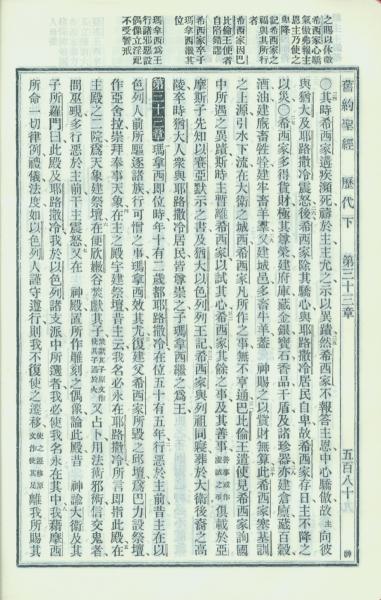 舊約聖經 歷代下 第三十三章 五百八十
之賜以休徵
希西家心驕
氣傲弗報主
恩主乃使之
卑降
記希西家之
福與其所行
者
希西家因巴
比倫王使者
自陷錯謬
希西家卒子
瑪拿西繼其
位
瑪拿西爲王
行諸邪惡設
偶像立淫祀
不受警戒
○其時希西家遘疾瀕死禱於主主允之示以異蹟然希西家不報答主恩中心驕傲故主向彼
與猶大及耶路撒冷震怒後希西家除其驕心與耶路撒冷居民自卑故希西家存日主不降之
以災○希西家多得貨財極其尊榮建府庫藏金銀寶石香品干盾及諸珍器亦建倉廩藏百穀
酒油建廐畜牲畜建牢畜羊羣又建城邑多畜牛羊蓋 神賜之以貨財無算此希西家塞基訓
之上源引水下流在大衛之城西希西家凡所作之事無不亨通巴比倫王遣使見希西家詢國
中所遇之異蹟斯時主暫離希西家以試其心希西家其餘之事及其善事俱載於亞
摩斯子先知以賽亞默示之書及猶大以色列列王記希西家與列祖同寢葬於大衛後裔之高
陵卒時猶大人衆與耶路撒冷居民皆尊榮之子瑪拿西繼之爲王
第三十三章 瑪拿西卽位時年十有二歲都耶路撒冷在位五十有五年行惡於主前昔主在以
色列人前所驅逐諸族行可憎之事瑪拿西效其尤復建父希西家所毀之邱壇爲巴力設祭壇
作亞舍拉崇拜奉事天象在主之殿宇建祭壇昔主云我名必永在耶路撒冷所言卽指此殿在
主殿之二院爲天象建祭壇在便欣嫩谷焚獻其子又占卜用法術邪術信交鬼者
問巫覡多行惡於主前干主震怒又在 神殿置所作雕刻之偶像論此殿昔 神諭大衛及其
子所羅門曰此殿及耶路撒冷我於以色列諸支派中所選者我必使我名永在其中我藉摩西
所命一切律例禮儀法度如以色列人謹守遵行則我不復使之遷移離我所賜其